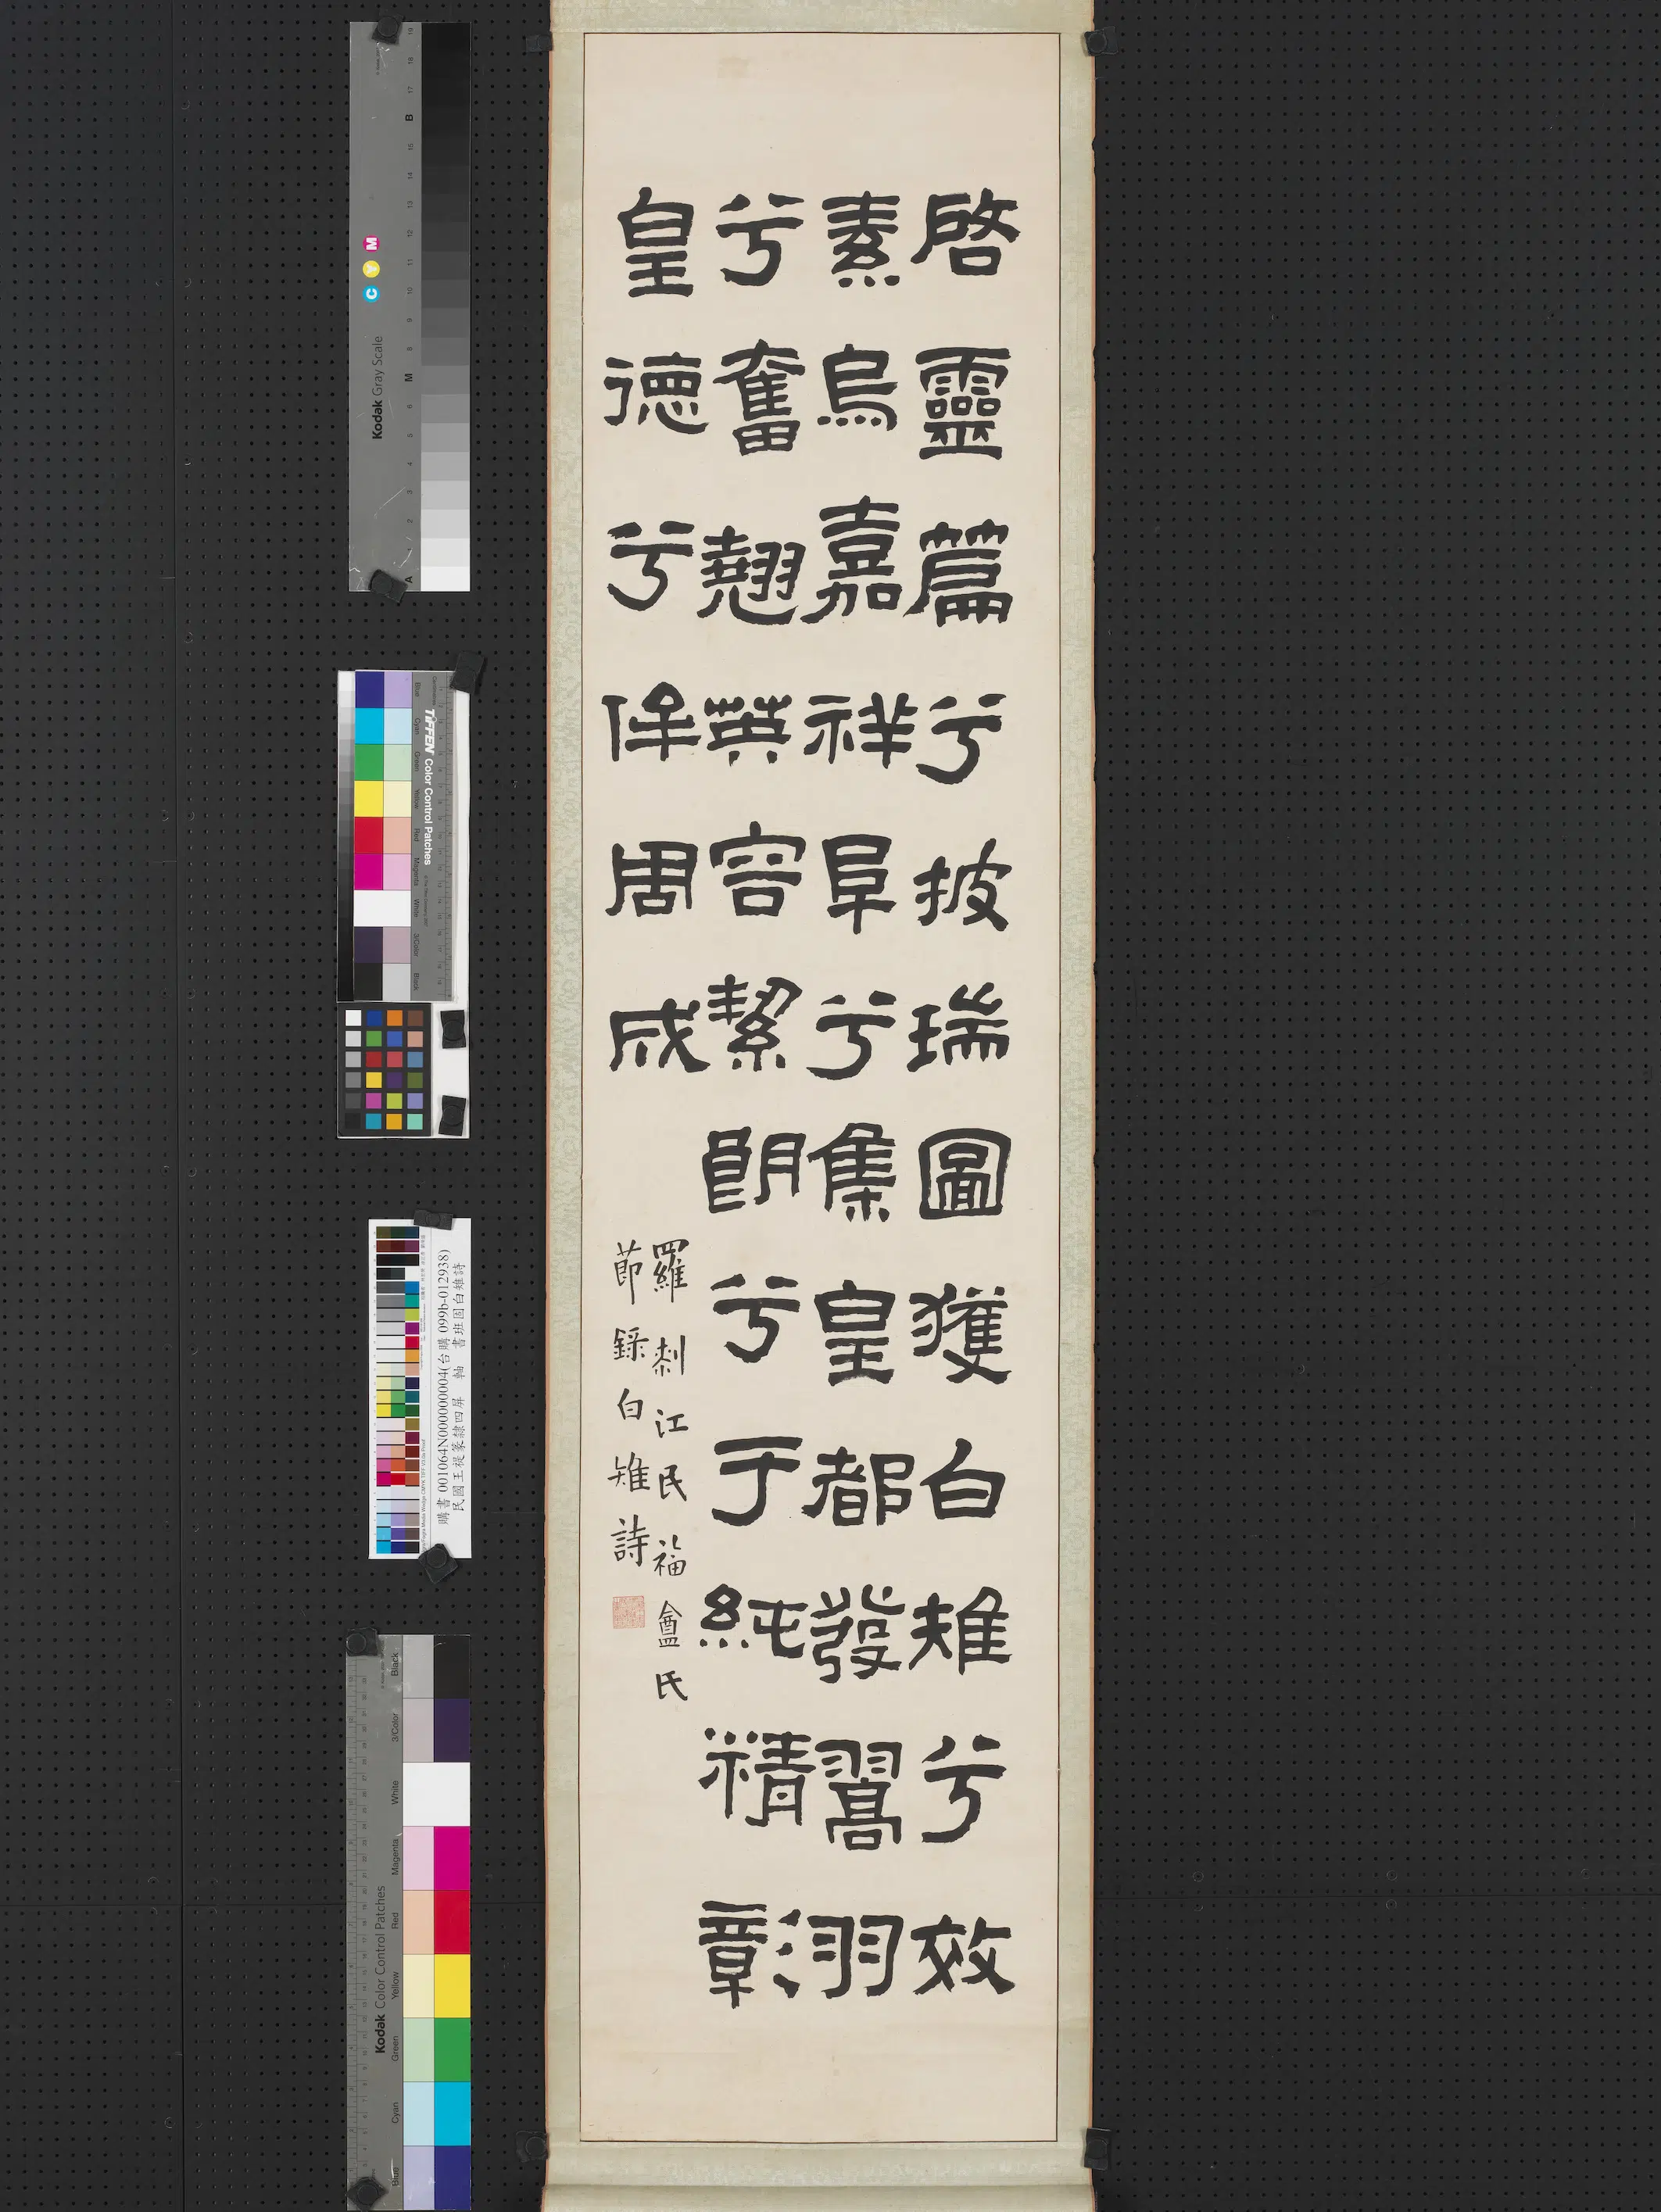 啓靈篇兮披瑞圖獲白雉兮效
素烏嘉祥阜兮集皇都發翯羽
兮奮翹英容絜朗兮于純精彰
皇德兮侔周成
羅剎江民福盦氏
節錄白雉詩
Kodak Gray Scale
C Y M
TIFFEN Color Control Patches
Blue Cyan Green Yellow Red Magenta White 3/Color Black
購書001064N000000004(台購099b-012938)
民國王禔篆隸四屏 軸 書班固白雉詩
Kodak Color Control Patches
Blue Cyan Green Yellow Red Magenta White 3/Color Black